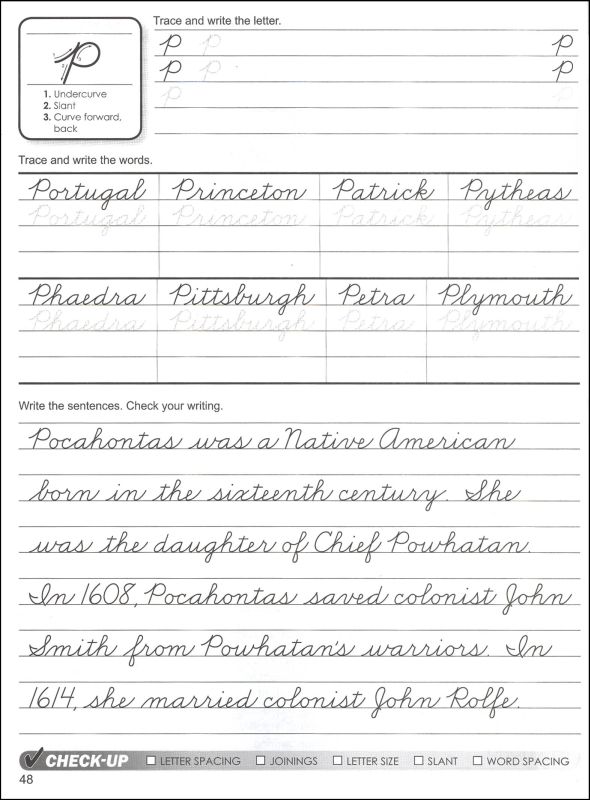 Trace and write the letter.
P P P
P P P
P P
1. Undercurve
2. Slant
3. Curve forward,
back
Trace and write the words.
Portugal Princeton Patrick Pytheas
Portugal Princeton Patrick Pytheas
Phaedra Pittsburgh Petra Plymouth
Phaedra Pittsburgh Petra Plymouth
Write the sentences. Check your writing.
Pocahontas was a Native American
born in the sixteenth century. She
was the daughter of Chief Powhatan.
In 1608, Pocahontas saved colonist John
Smith from Powhatan's warriors. In
1614, she married colonist John Rolfe.
CHECK-UP LETTER SPACING JOININGS LETTER SIZE SLANT WORD SPACING
48